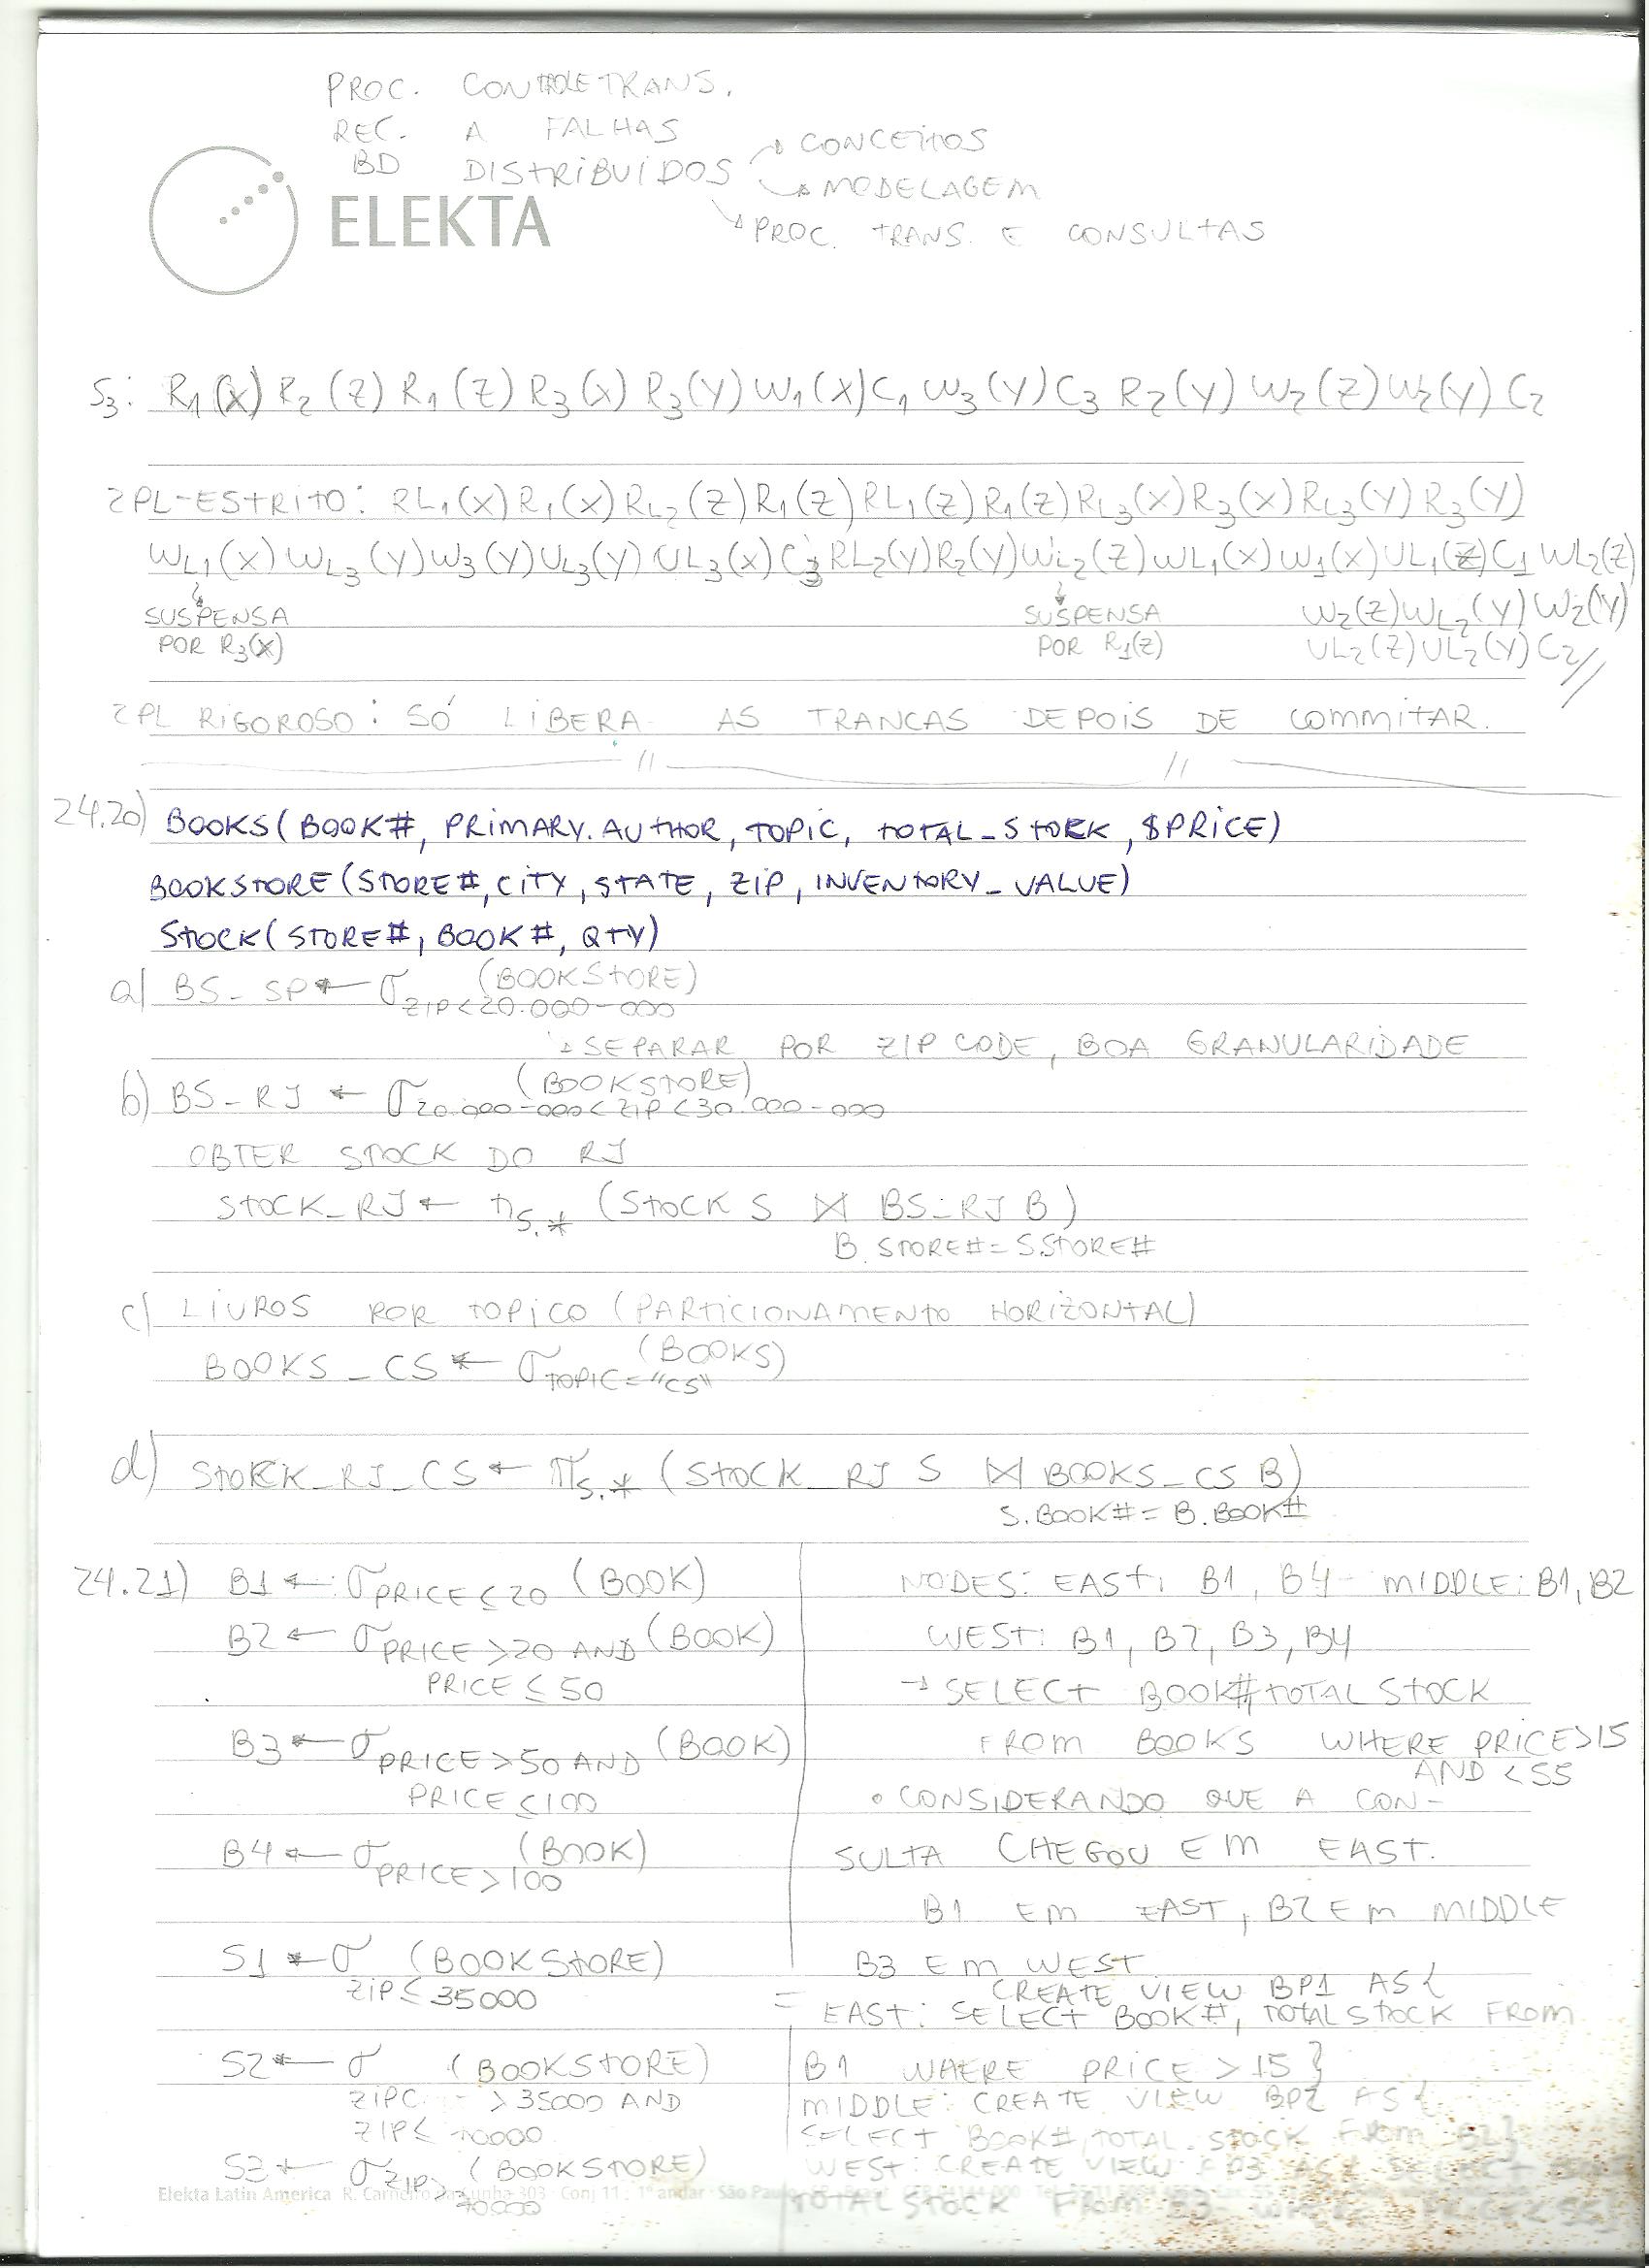 PROC. CONTROLE TRANS.
REC. A FALHAS
BD DISTRIBUIDOS → CONCEITOS
→ MODELAGEM
→ PROC. TRANS. E CONSULTAS
ELEKTA
S₃: R₁(X) R₂(Z) R₁(Z) R₃(X) R₃(Y) W₁(X) C₁ W₃(Y) C₃ R₂(Y) W₂(Z) W₂(Y) C₂
2PL-ESTRITO: RL₁(X) R₁(X) RL₂(Z) R₁(Z) RL₁(Z) R₁(Z) RL₃(X) R₃(X) RL₃(Y) R₃(Y)
WL₁(X) WL₃(Y) W₃(Y) UL₃(Y) UL₃(X) C₃ RL₂(Y) R₂(Y) WL₂(Z) WL₁(X) W₁(X) UL₁(Z) C₁ WL₂(Z)
SUSPENSA POR R₃(X)
SUSPENSA POR R₁(Z)
W₂(Z) WL₂(Y) W₂(Y)
UL₂(Z) UL₂(Y) C₂//
2PL RIGOROSO: SÓ LIBERA AS TRANCAS DEPOIS DE COMMITAR.
// //
24.20) BOOKS(BOOK#, PRIMARY.AUTHOR, TOPIC, TOTAL_STOCK, $PRICE)
BOOKSTORE(STORE#, CITY, STATE, ZIP, INVENTORY_VALUE)
STOCK(STORE#, BOOK#, QTY)
a) BS_SP ← σ ZIP<20.000-000 (BOOKSTORE)
→ SEPARAR POR ZIP CODE, BOA GRANULARIDADE
b) BS_RJ ← σ 20.000-000<ZIP<30.000-000 (BOOKSTORE)
OBTER STOCK DO RJ
STOCK_RJ ← π S.* (STOCK S ⋈ BS_RJ B)
B.STORE#=S.STORE#
c) LIVROS POR TOPICO (PARTICIONAMENTO HORIZONTAL)
BOOKS_CS ← σ TOPIC="CS" (BOOKS)
d) STOCK_RJ_CS ← π S.* (STOCK_RJ S ⋈ BOOKS_CS B)
S.BOOK#=B.BOOK#
24.21) B1 ← σ PRICE≤20 (BOOK)
B2 ← σ PRICE>20 AND (BOOK)
PRICE≤50
B3 ← σ PRICE>50 AND (BOOK)
PRICE≤100
B4 ← σ PRICE>100 (BOOK)
S1 ← σ (BOOKSTORE)
ZIP≤35000
S2 ← σ (BOOKSTORE)
>35000 AND
ZIP≤ 70000
S3 ← σ ZIP> (BOOKSTORE)
70000
NODES: EAST: B1, B4 MIDDLE: B1, B2
WEST: B1, B2, B3, B4
→ SELECT BOOK#, TOTAL STOCK
FROM BOOKS WHERE PRICE>15
AND <55
• CONSIDERANDO QUE A CON-
SULTA CHEGOU EM EAST.
B1 EM EAST, B2 EM MIDDLE
B3 EM WEST
CREATE VIEW BP1 AS {
= EAST: SELECT BOOK#, TOTAL STOCK FROM
B1 WHERE PRICE > 15 }
MIDDLE: CREATE VIEW BP2 AS {
SELECT BOOK#, TOTAL STOCK FROM B2}
WEST: CREATE VIEW
TOTAL STOCK FROM B3
Elekta Latin America R. Carneiro da Cunha 303 · Conj 11 · 1º andar · São Paulo